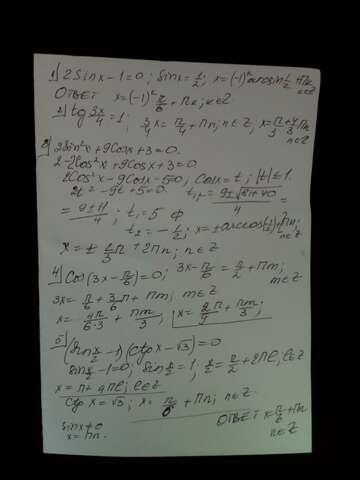 1) 2Sinx - 1 = 0; Sinx = 1/2; x = (-1)^k arcsin 1/2 + πk, k∈Z
Ответ x = (-1)^k π/6 + πk; k∈Z
2) tg 3x/4 = 1; 3/4 x = π/4 + πn; n∈Z; x = π/3 + 4/3 πn n∈Z
3) 2Sin²x + 9Cosx + 3 = 0.
2 - 2Cos²x + 9Cosx + 3 = 0
2Cos²x - 9Cosx - 5 = 0; Cosx = t; |t| ≤ 1.
2t² - 9t + 5 = 0. t₁,₂ = (9 ± √(81 + 40))/4 =
= (9 ± 11)/4; t₁ = 5 ф
t₂ = -1/2; x = ± arccos(-1/2) + 2πn; n∈Z
x = ± 2/3 π + 2πn; n∈Z
4) Cos(3x - π/6) = 0; 3x - π/6 = π/2 + πm; m∈Z
3x = π/6 + 3/6 π + πm; m∈Z
x = 4π/(6·3) + πm/3; x = 2/9 π + πm/3;
5) (Sin x/2 - 1)(Ctg x - √3) = 0
Sin x/2 - 1 = 0; Sin x/2 = 1; x/2 = π/2 + 2πl; l∈Z
x = π + 4πl; l∈Z
Ctg x = √3; x = π/6 + πn; n∈Z.
Sinx ≠ 0
x = πn.
Ответ x = π/6 + πn
n∈Z